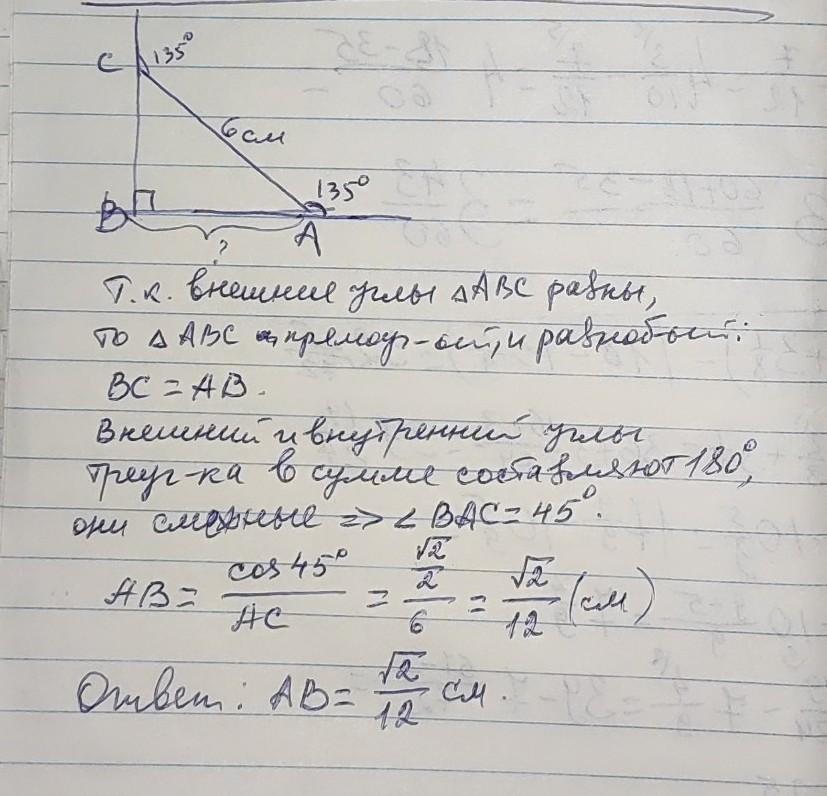 C 135°
6 см
135°
B A
?
Т.к. внешние углы △ABC равны,
то △ABC прямоуг-ый, и равнобый:
BC = AB.
Внешний и внутренний углы
треуг-ка в сумме составляют 180°,
они смежные => ∠BAC = 45°.
AB = cos45°/AC = (√2/2)/6 = √2/12 (см)
Ответ: AB = √2/12 см.